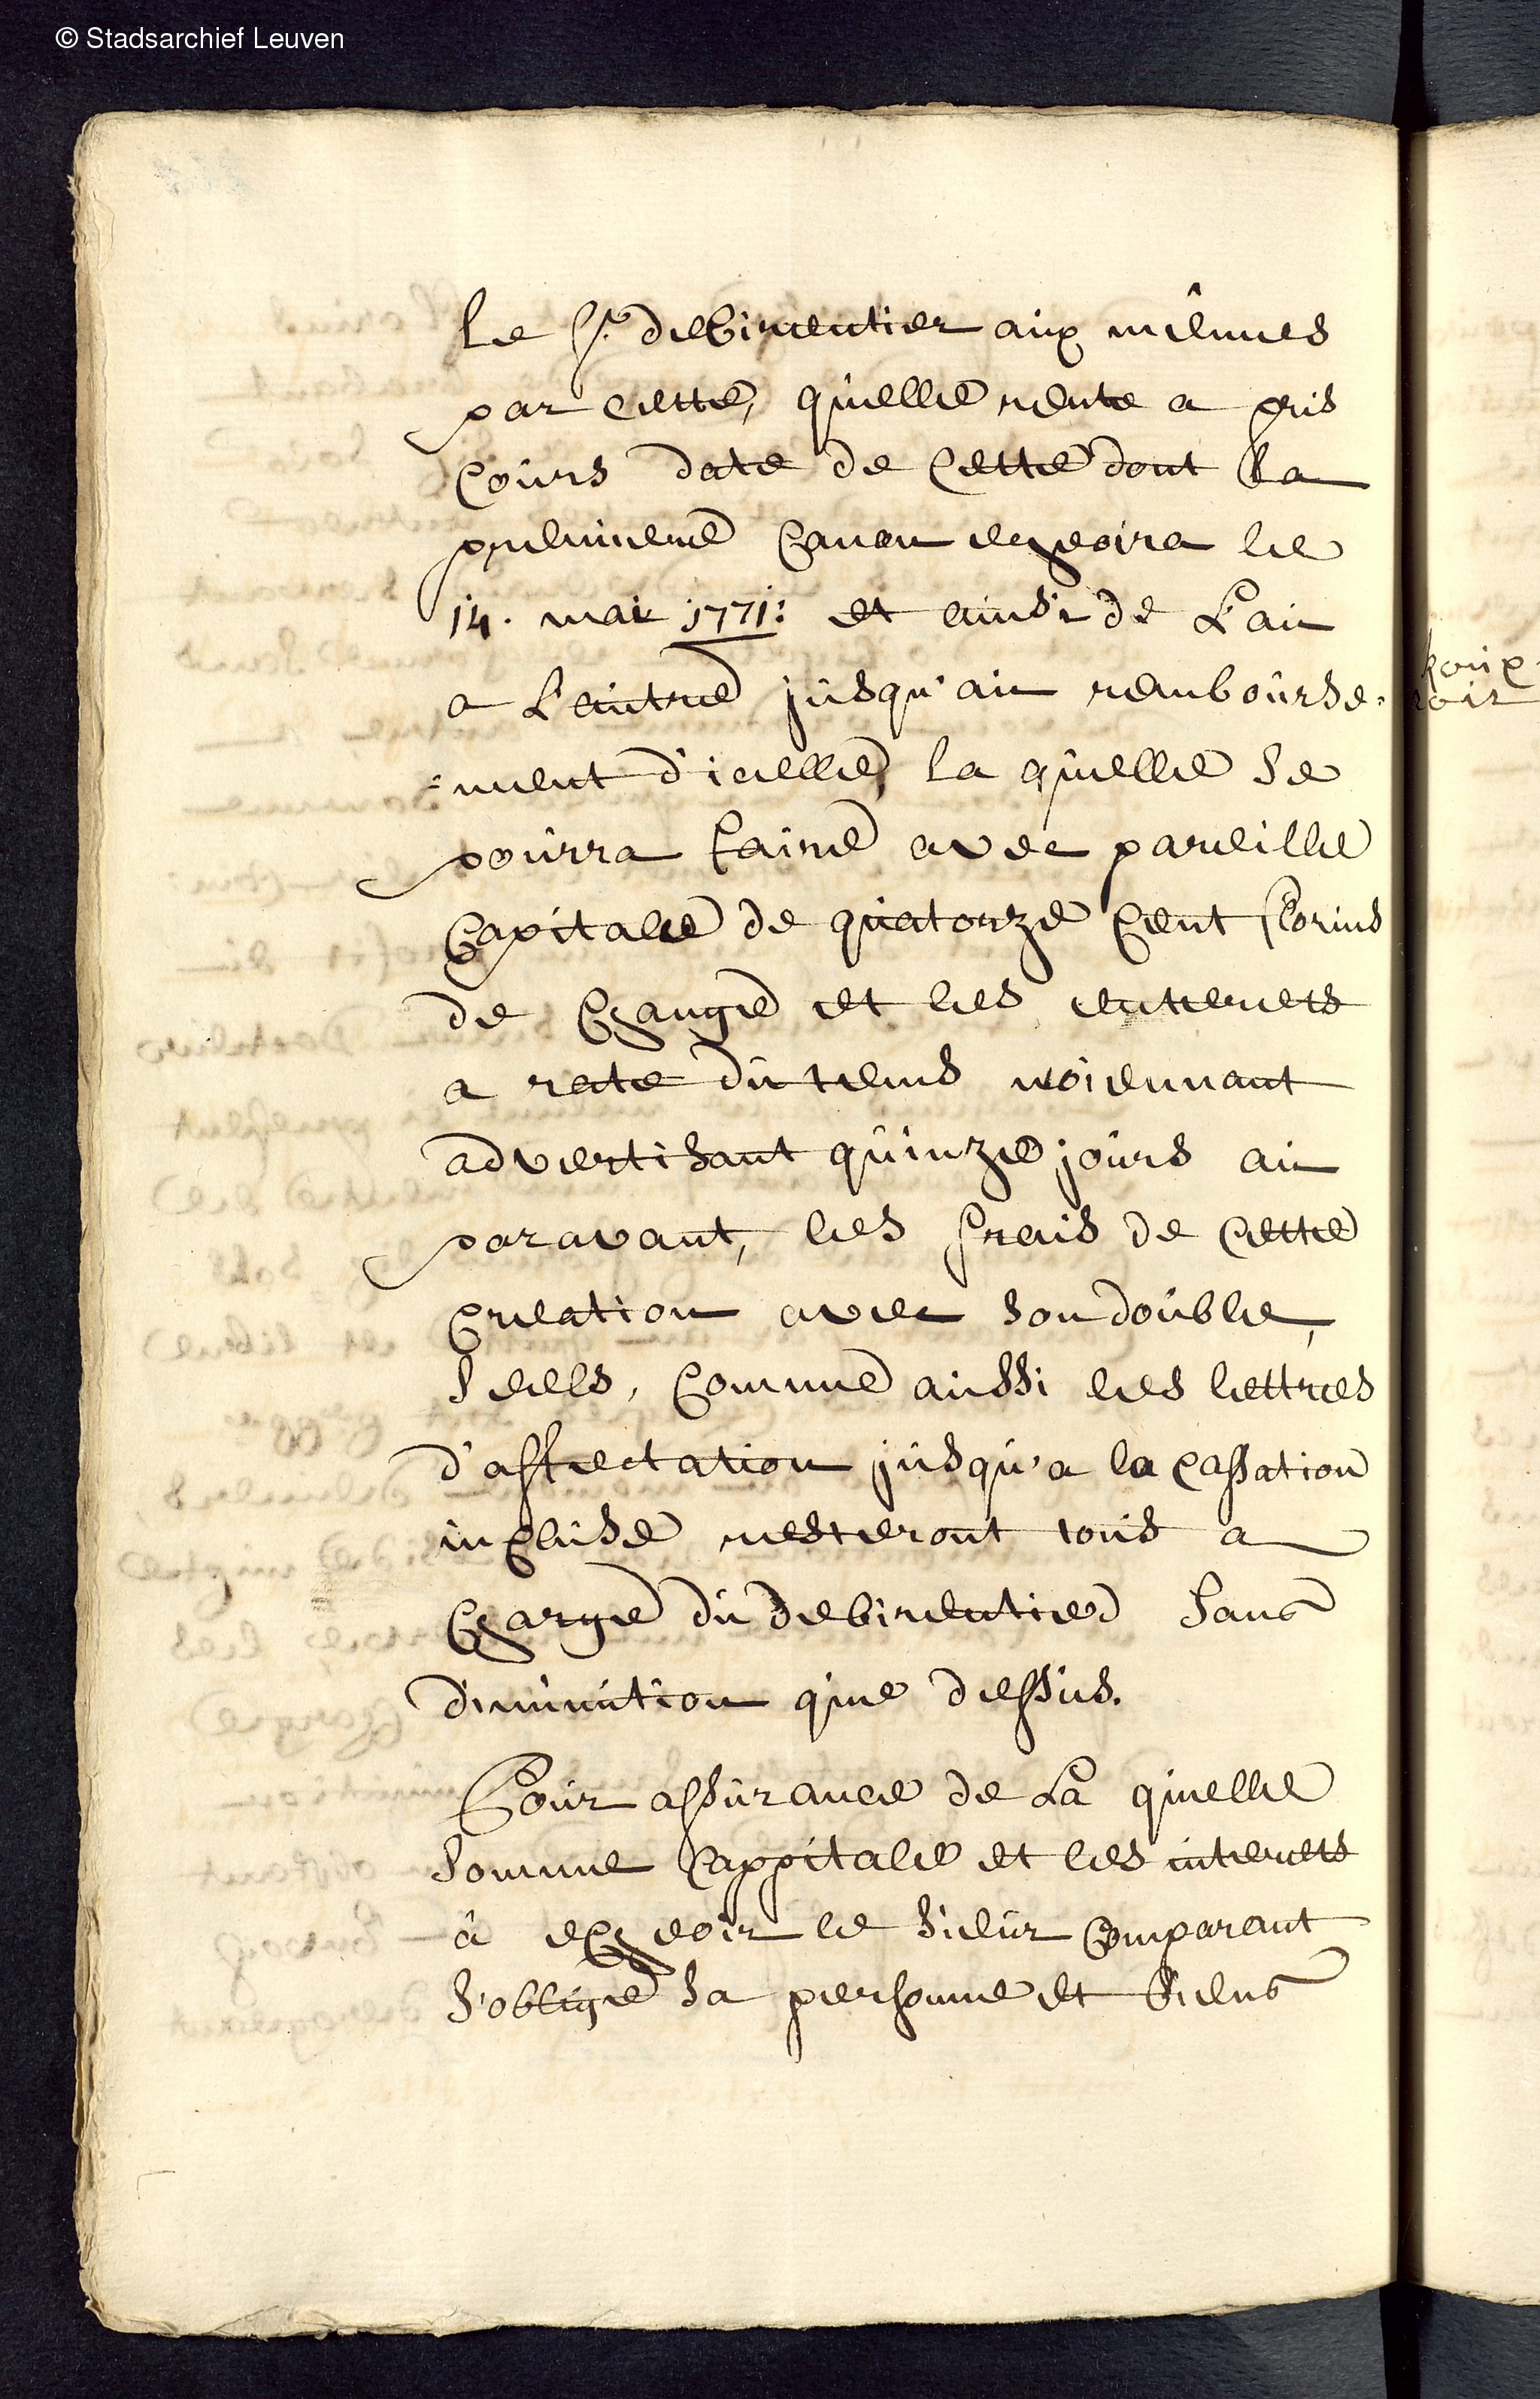 © Stadsarchief Leuven
le Sr. debirentier aux mêmes
par cette, quelle rente a pris
Cours date de Cette dont la
premiere Canon echeoira le
14. mai 1771: et ainsi de L'an
a L'autre jusqu'au rembourse=
=ment d'icelle, la quelle se
pourra faire avec pareille
Capitale de quatorze Cent florins
de Change et les enterets
a rate du tems moiennant
advertisant quinze jours au
paravant, les frais de Cette
Creation avec son double,
seels, Comme aussi les lettres
d'affectation jusqu'a la cassation
incluse resteront tous a
Charge du debirentier sans
diminution que dessus.
Pour assurance de La quelle
somme Cappitale et les interets
à echeoir le sieur Comparant
s'oblige sa personne et biens